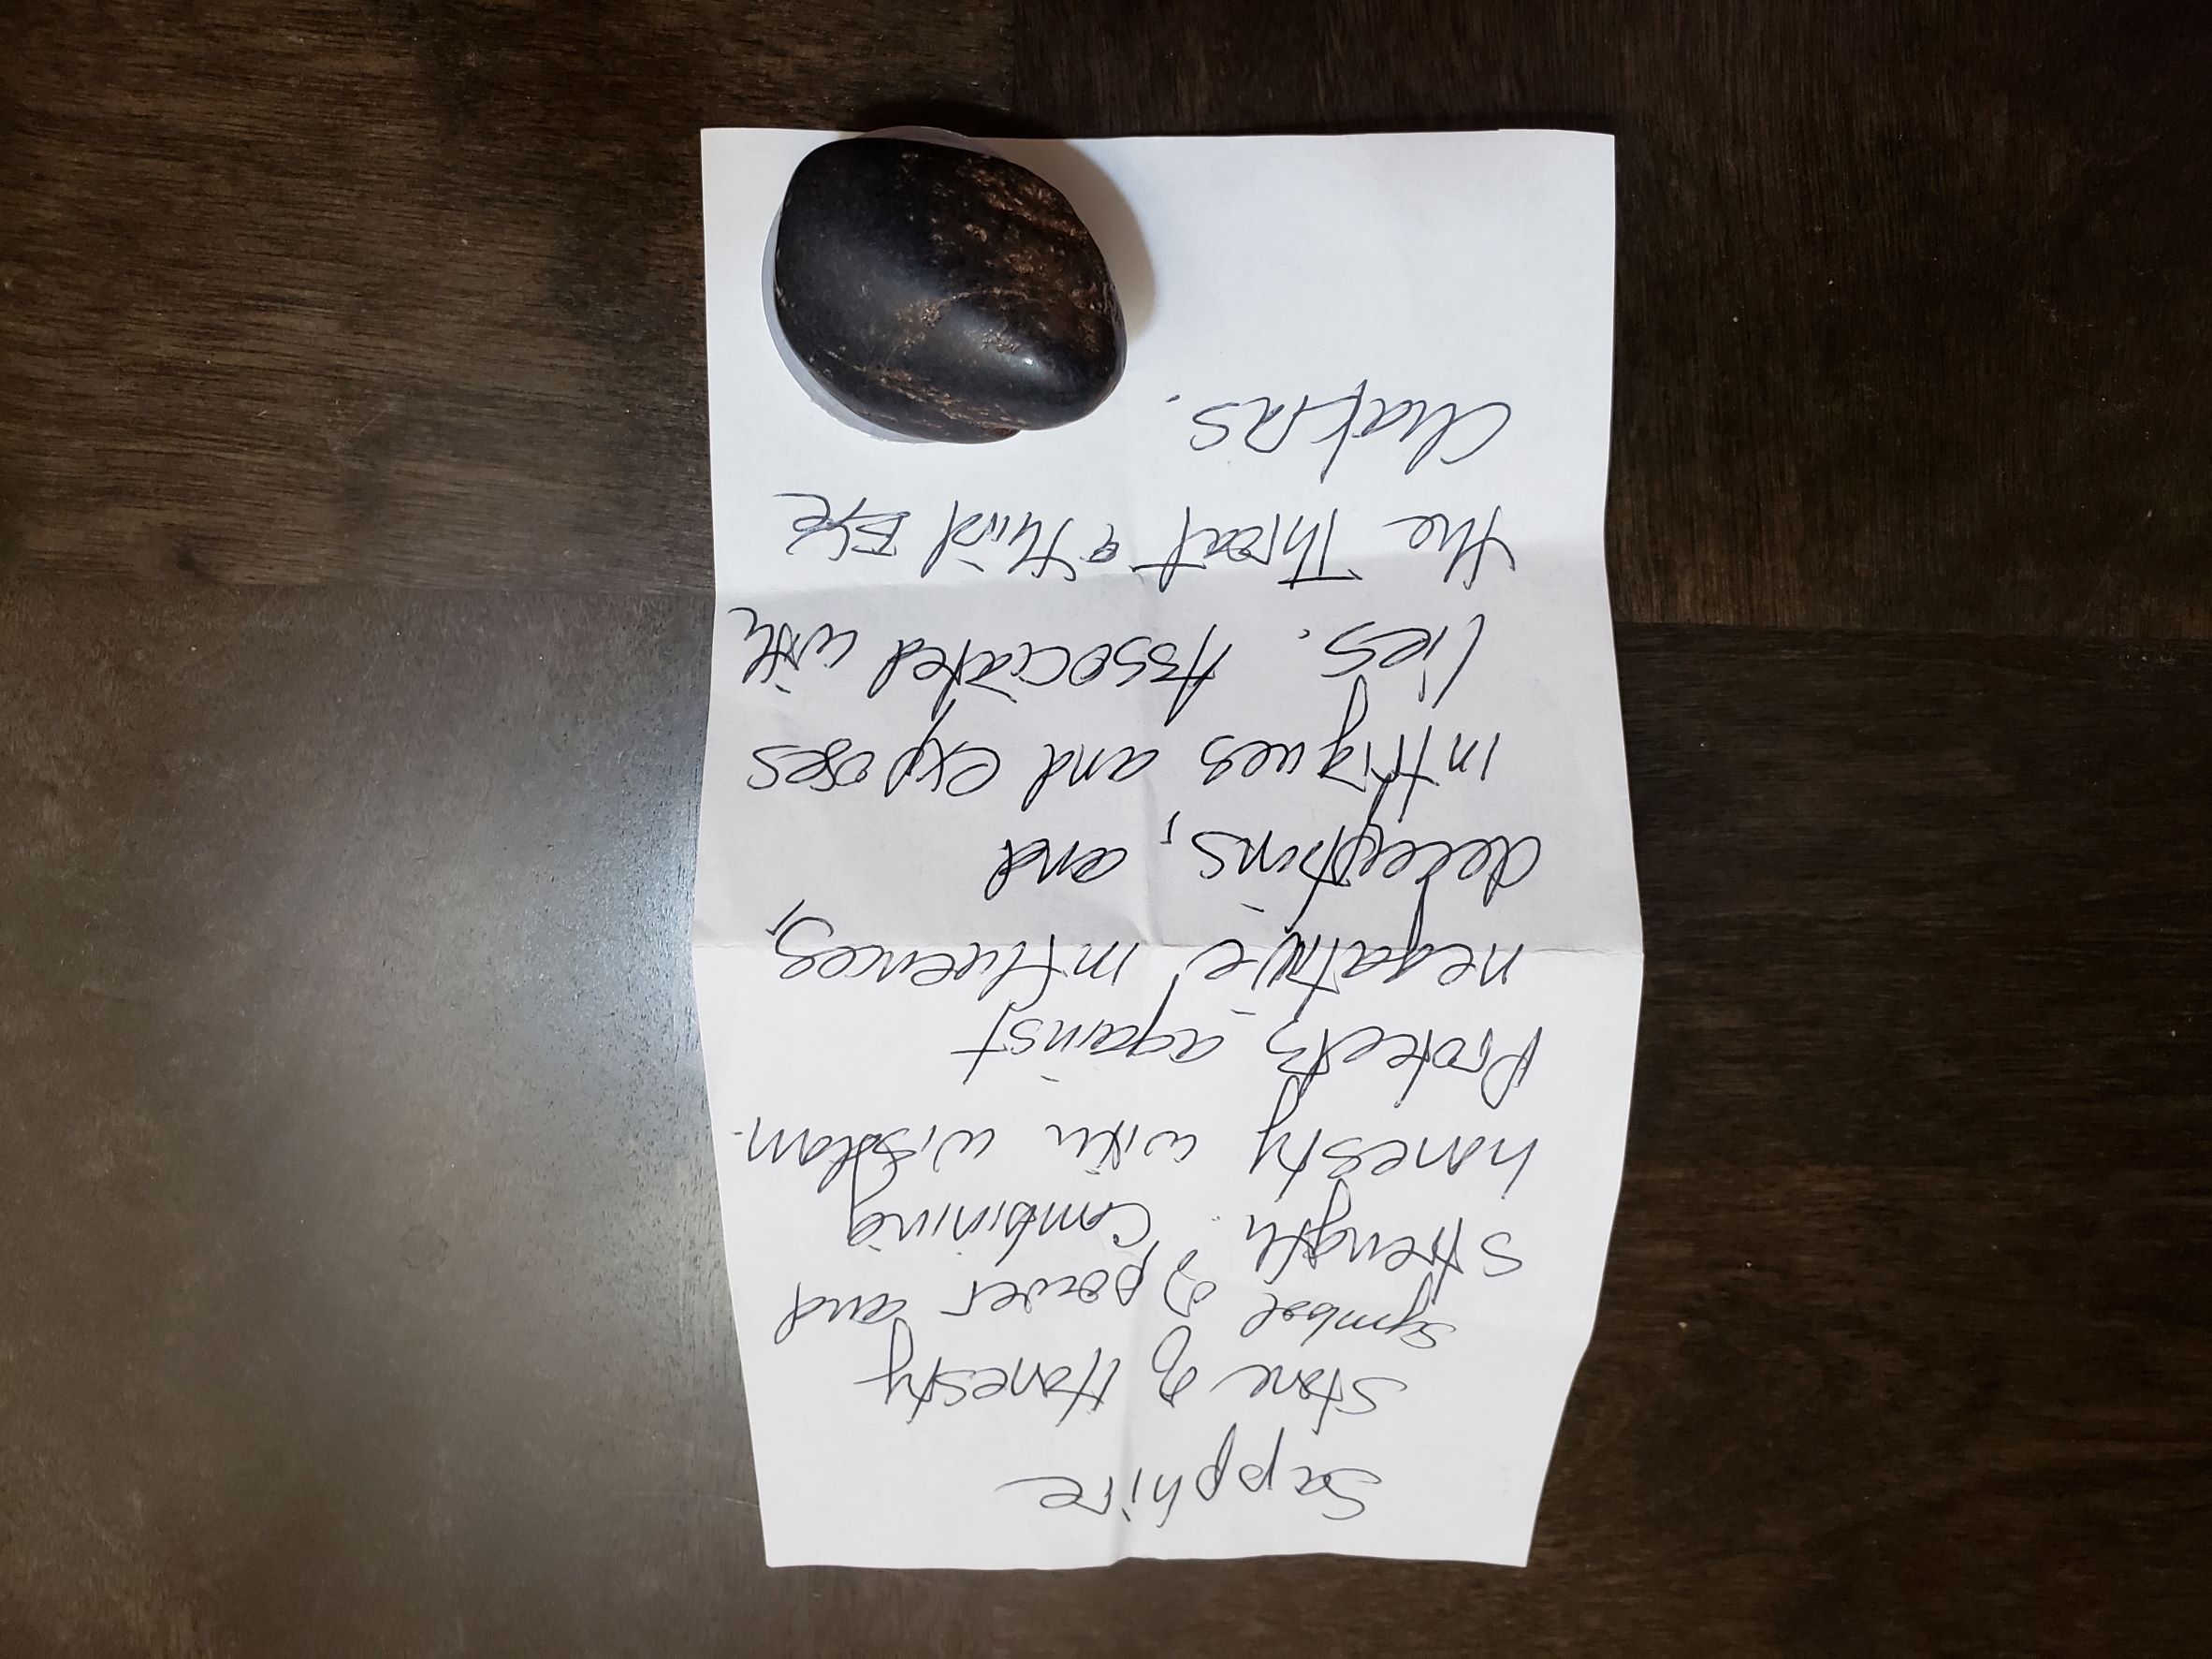 Sapphire
Stone of Honesty
Symbol of power and
strength. Combining
honesty with wisdom.
Protects against
negative influences,
deceptions, and
intrigues and exposes
lies. Associated with
the Throat & third Eye
Chakras.